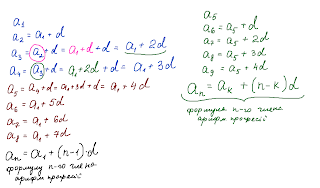 a₁
a₂ = a₁ + d
a₃ = a₂ + d = a₁ + d + d = a₁ + 2d
a₄ = a₃ + d = a₁ + 2d + d = a₁ + 3d
a₅ = a₄ + d = a₁ + 3d + d = a₁ + 4d
a₆ = a₁ + 5d
a₇ = a₁ + 6d
a₈ = a₁ + 7d
aₙ = a₁ + (n-1)·d
формула n-го члена
арифм прогресії
a₅
a₆ = a₅ + d
a₇ = a₅ + 2d
a₈ = a₅ + 3d
a₉ = a₅ + 4d
aₙ = aₖ + (n-k)d
формула n-го члена
арифм прогресії